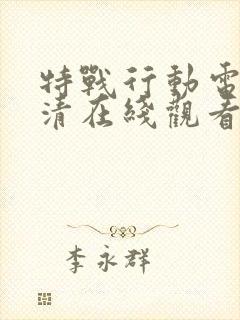 特戰行動電
清在綫觀看
李永群